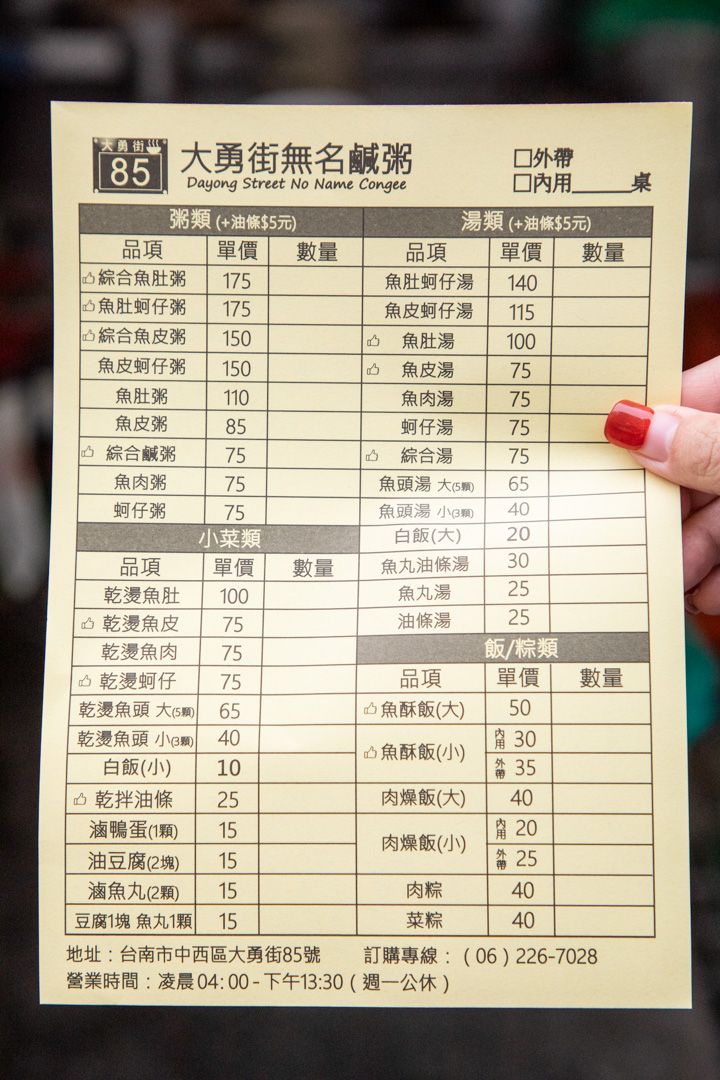 大勇街
85
大勇街無名鹹粥
Dayong Street No Name Congee
□外帶
□內用______桌
粥類 (+油條$5元)
品項 單價 數量
綜合魚肚粥 175
魚肚蚵仔粥 175
綜合魚皮粥 150
魚皮蚵仔粥 150
魚肚粥 110
魚皮粥 85
綜合鹹粥 75
魚肉粥 75
蚵仔粥 75
小菜類
品項 單價 數量
乾燙魚肚 100
乾燙魚皮 75
乾燙魚肉 75
乾燙蚵仔 75
乾燙魚頭 大(5顆) 65
乾燙魚頭 小(3顆) 40
白飯(小) 10
乾拌油條 25
滷鴨蛋(1顆) 15
油豆腐(2塊) 15
滷魚丸(2顆) 15
豆腐1塊 魚丸1顆 15
湯類 (+油條$5元)
品項 單價 數量
魚肚蚵仔湯 140
魚皮蚵仔湯 115
魚肚湯 100
魚皮湯 75
魚肉湯 75
蚵仔湯 75
綜合湯 75
魚頭湯 大(5顆) 65
魚頭湯 小(3顆) 40
白飯(大) 20
魚丸油條湯 30
魚丸湯 25
油條湯 25
飯/粽類
品項 單價 數量
魚酥飯(大) 50
魚酥飯(小) 內用 30
外帶 35
肉燥飯(大) 40
肉燥飯(小) 內用 20
外帶 25
肉粽 40
菜粽 40
地址：台南市中西區大勇街85號 訂購專線：（06）226-7028
營業時間：凌晨04:00-下午13:30（週一公休）